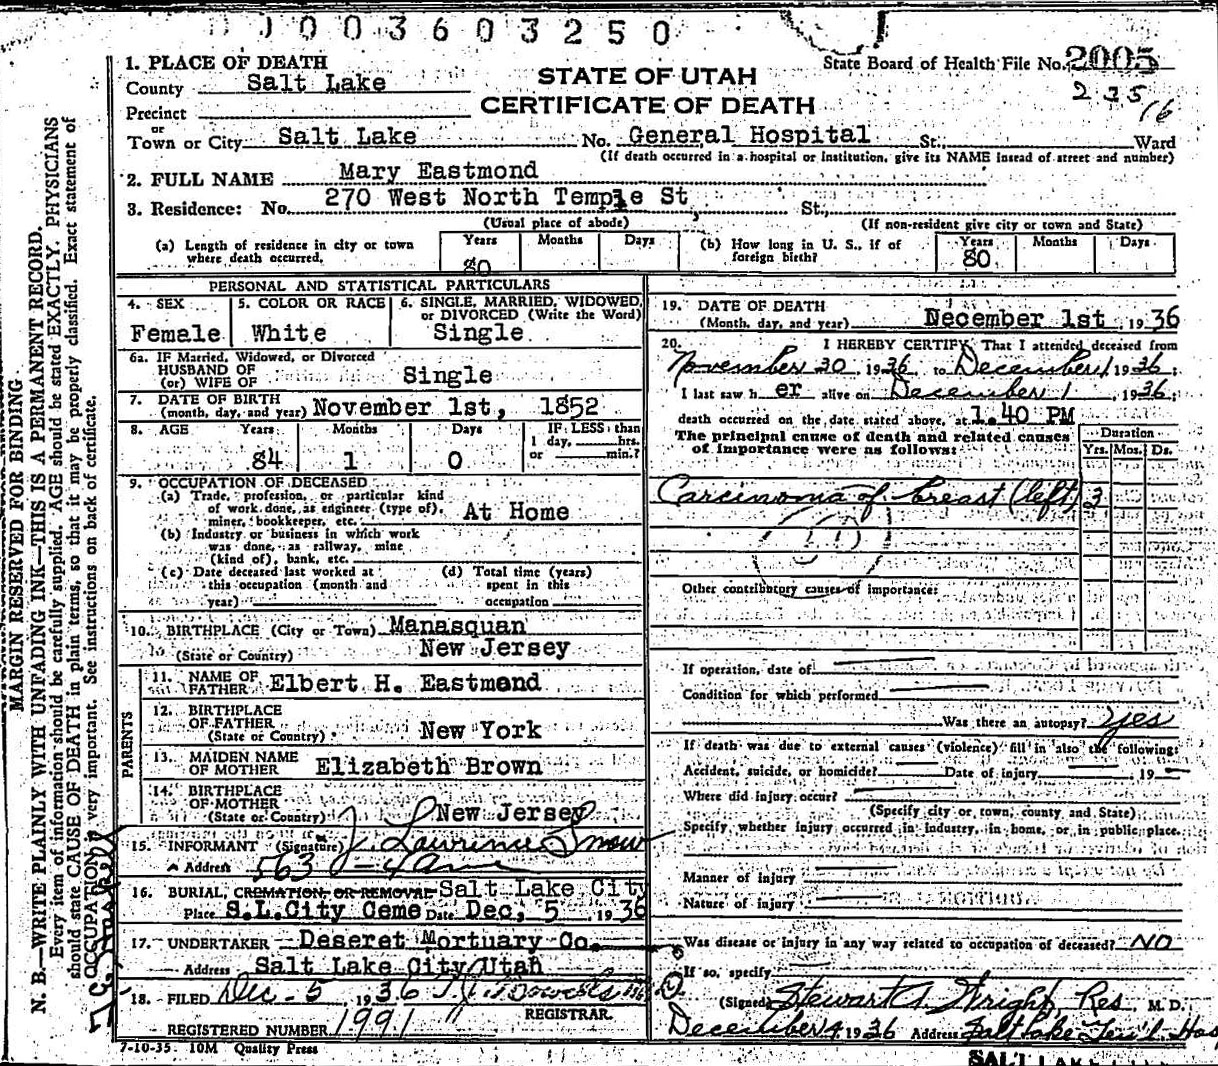 1003603250
1. PLACE OF DEATH
County Salt Lake
STATE OF UTAH
CERTIFICATE OF DEATH
State Board of Health File No. 2005
235
16
Precinct
or
Town or City Salt Lake No. General Hospital St., Ward
(If death occurred in a hospital or institution, give its NAME insead of street and number)
2. FULL NAME Mary Eastmond
3. Residence: No. 270 West North Temple St, St.,
(Usual place of abode) (If non-resident give city or town and State)
(a) Length of residence in city or town where death occurred. Years 80 Months Days
(b) How long in U. S., if of foreign birth? Years 80 Months Days
PERSONAL AND STATISTICAL PARTICULARS
4. SEX Female
5. COLOR OR RACE White
6. SINGLE, MARRIED, WIDOWED, or DIVORCED (Write the Word) Single
6a. IF Married, Widowed, or Divorced
HUSBAND OF
(or) WIFE OF Single
7. DATE OF BIRTH
(month, day, and year) November 1st, 1852
8. AGE Years 84 Months 1 Days 0 IF LESS than 1 day, hrs. or min.?
9. OCCUPATION OF DECEASED
(a) Trade, profession, or particular kind
of work done, as engineer (type of),
miner, bookkeeper, etc. At Home
(b) Industry or business in which work
was done, as railway, mine
(kind of), bank, etc.
(c) Date deceased last worked at
this occupation (month and
year)
(d) Total time (years)
spent in this
occupation
10. BIRTHPLACE (City or Town) Manasquan
(State or Country) New Jersey
PARENTS
11. NAME OF FATHER Elbert H. Eastmond
12. BIRTHPLACE
OF FATHER
(State or Country) New York
13. MAIDEN NAME
OF MOTHER Elizabeth Brown
14. BIRTHPLACE
OF MOTHER
(State or Country) New Jersey
15. INFORMANT (Signature) J. Lawrence Snow
Address 563 - 4 Ave
16. BURIAL, CREMATION, OR REMOVAL Salt Lake City
Place S.L.City Ceme Date Dec, 5 1936
17. UNDERTAKER Deseret Mortuary Co.
Address Salt Lake City Utah
18. FILED Dec - 5, 1936
REGISTRAR.
REGISTERED NUMBER 1991
7-10-35 10M Quality Press
19. DATE OF DEATH
(Month, day, and year) December 1st, 1936
20. I HEREBY CERTIFY, That I attended deceased from
November 30, 1936, to December 1 1936;
I last saw h er alive on December 1, 1936;
death occurred on the date stated above, at 1.40 PM
The principal cause of death and related causes
of importance were as follows:
Duration
Yrs. Mos. Ds.
Carcinoma of breast (left) 3
Other contributory causes of importance:
If operation, date of
Condition for which performed
Was there an autopsy? yes
If death was due to external causes (violence) fill in also the following:
Accident, suicide, or homicide? Date of injury 19
Where did injury occur?
(Specify city or town, county and State)
Specify whether injury occurred in industry, in home, or in public place.
Manner of injury
Nature of injury
Was disease or injury in any way related to occupation of deceased? NO
If so, specify
(Signed) Stewart A. Wright, Res, M. D.
December 4, 1936 Address Salt Lake Gen'l. Hos
SALT LAKE
MARGIN RESERVED FOR BINDING
N. B.—WRITE PLAINLY WITH UNFADING INK—THIS IS A PERMANENT RECORD.
Every item of information should be carefully supplied. AGE should be stated EXACTLY. PHYSICIANS
should state CAUSE OF DEATH in plain terms, so that it may be properly classified. Exact statement of
OCCUPATION very important. See instructions on back of certificate.